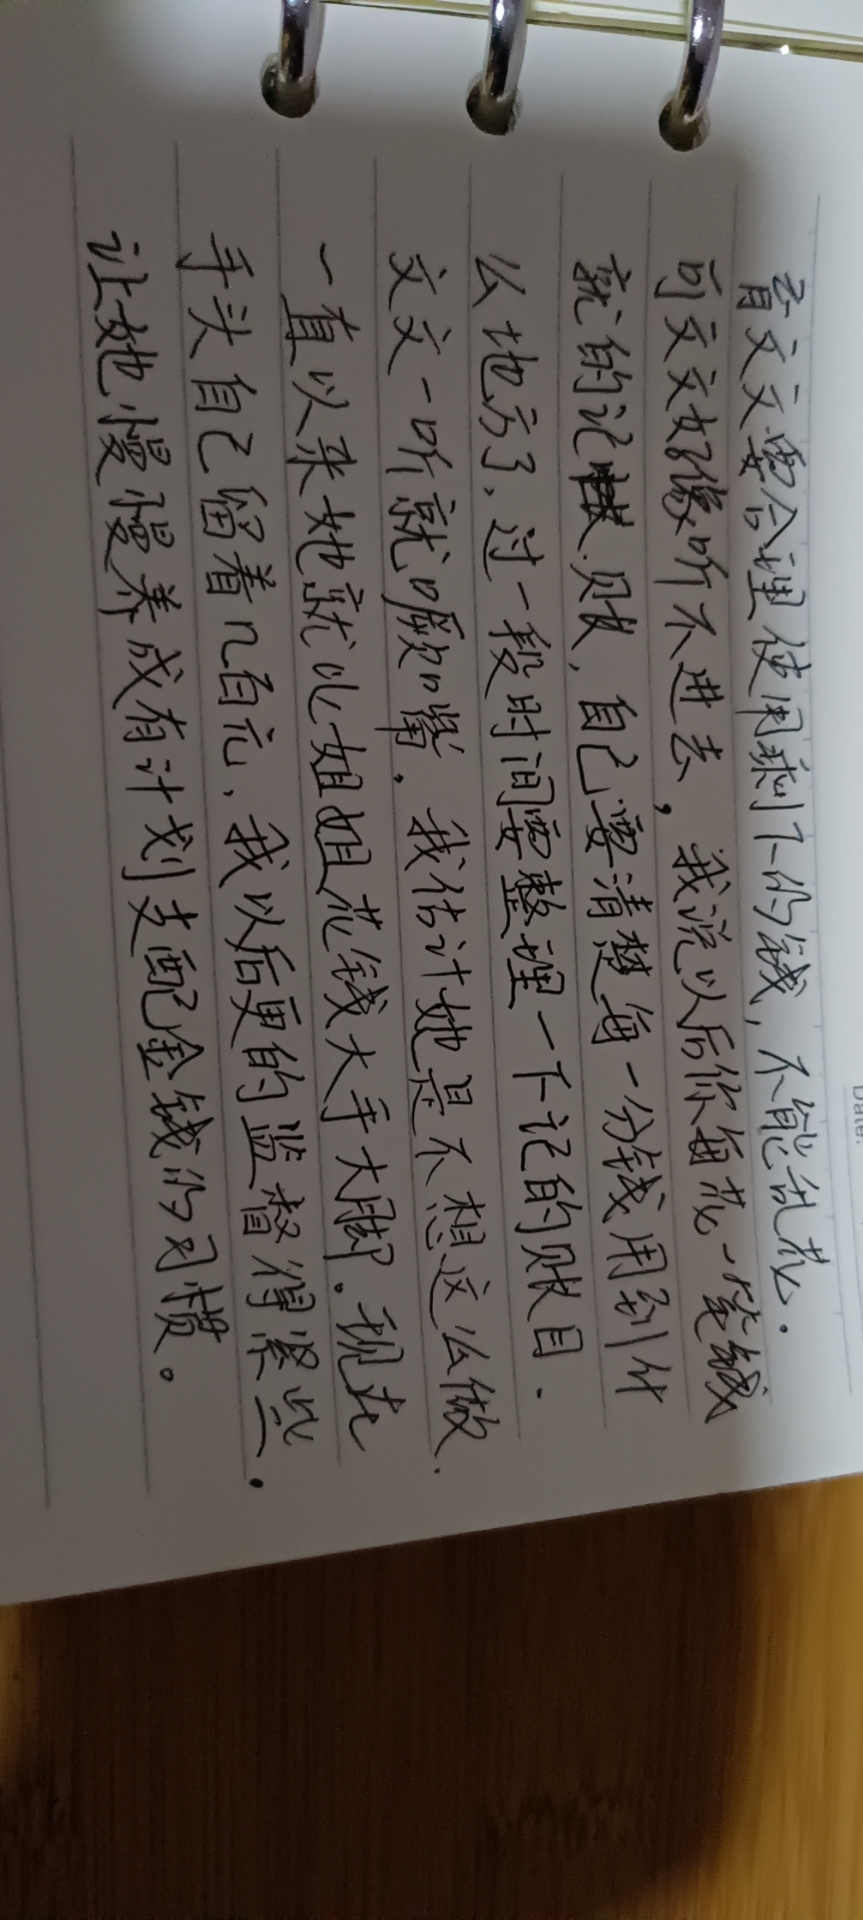 着文文要合理使用剩下的钱，不能乱花。
可文文好像听不进去，我说以后你每花一笔钱
就的记账，自己要清楚每一分钱用到什
么地方了，过一段时间要整理一下记的账目.
文文一听就嘴，我估计她是不想这么做.
一直以来她就比姐姐花钱大手大脚。现在
手头自己留着几百元，我以后更的监督得紧些.
让她慢慢养成有计划支配金钱的习惯。
Date: